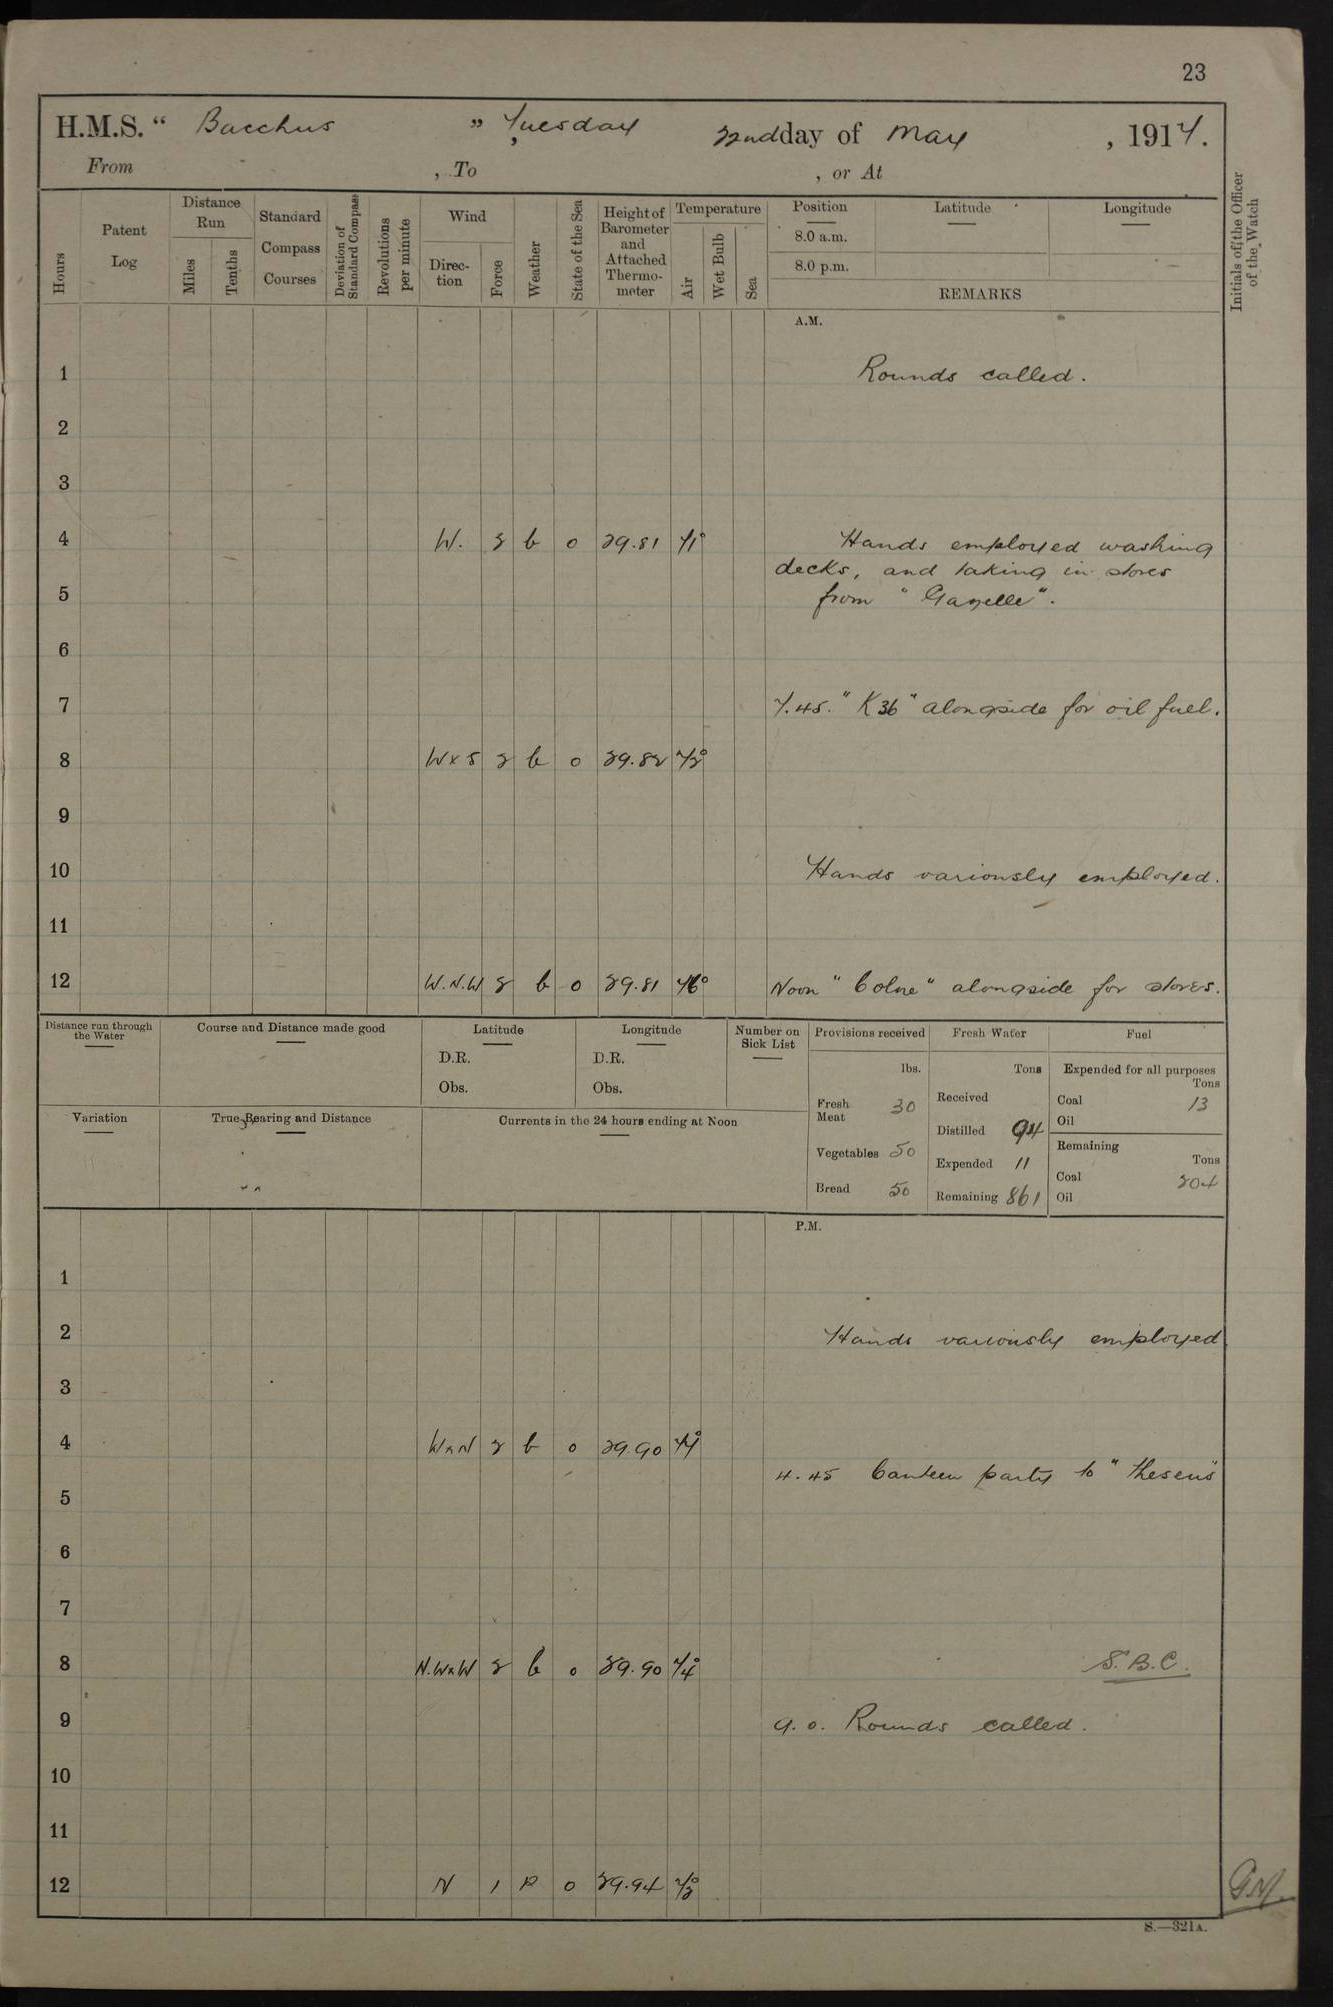 23
H.M.S. “ Bacchus ” Tuesday, 22nd day of May, 1917.
From , To , or At
Hours
Patent Log
Distance Run
Miles
Tenths
Standard Compass Courses
Deviation of Standard Compass
Revolutions per minute
Wind
Direction
Force
Weather
State of the Sea
Height of Barometer and Attached Thermometer
Temperature
Air
Wet Bulb
Sea
Position
8.0 a.m.
8.0 p.m.
Latitude
Longitude
REMARKS
Initials of the Officer of the Watch
A.M.
1 Rounds called.
2
3
4 W. 2 b 0 29.81 71° Hands employed washing
decks, and taking in stores
5 from "Gazelle".
6
7 7.45. "K36" alongside for oil fuel.
8 WxS 2 b 0 29.82 72°
9
10 Hands variously employed.
11
12 W.N.W 2 b 0 29.81 76° Noon "Colne" alongside for stores.
Distance run through the Water
Course and Distance made good
Latitude
D.R.
Obs.
Longitude
D.R.
Obs.
Number on Sick List
Variation
True Bearing and Distance
Currents in the 24 hours ending at Noon
Provisions received
lbs.
Fresh Meat 30
Vegetables 50
Bread 50
Fresh Water
Tons
Received
Distilled 94
Expended 11
Remaining 861
Fuel
Expended for all purposes
Tons
Coal 13
Oil
Remaining
Tons
Coal 204
Oil
P.M.
1
2 Hands variously employed
3
4 WxN 2 b 0 29.90
4.45 Canteen party to "Theseus"
5
6
7
8 N.WxW 2 b 0 29.90 74° S.B.C.
9 9.0. Rounds called.
10
11
12 N 1 0 29.94 72°
S.—321A.